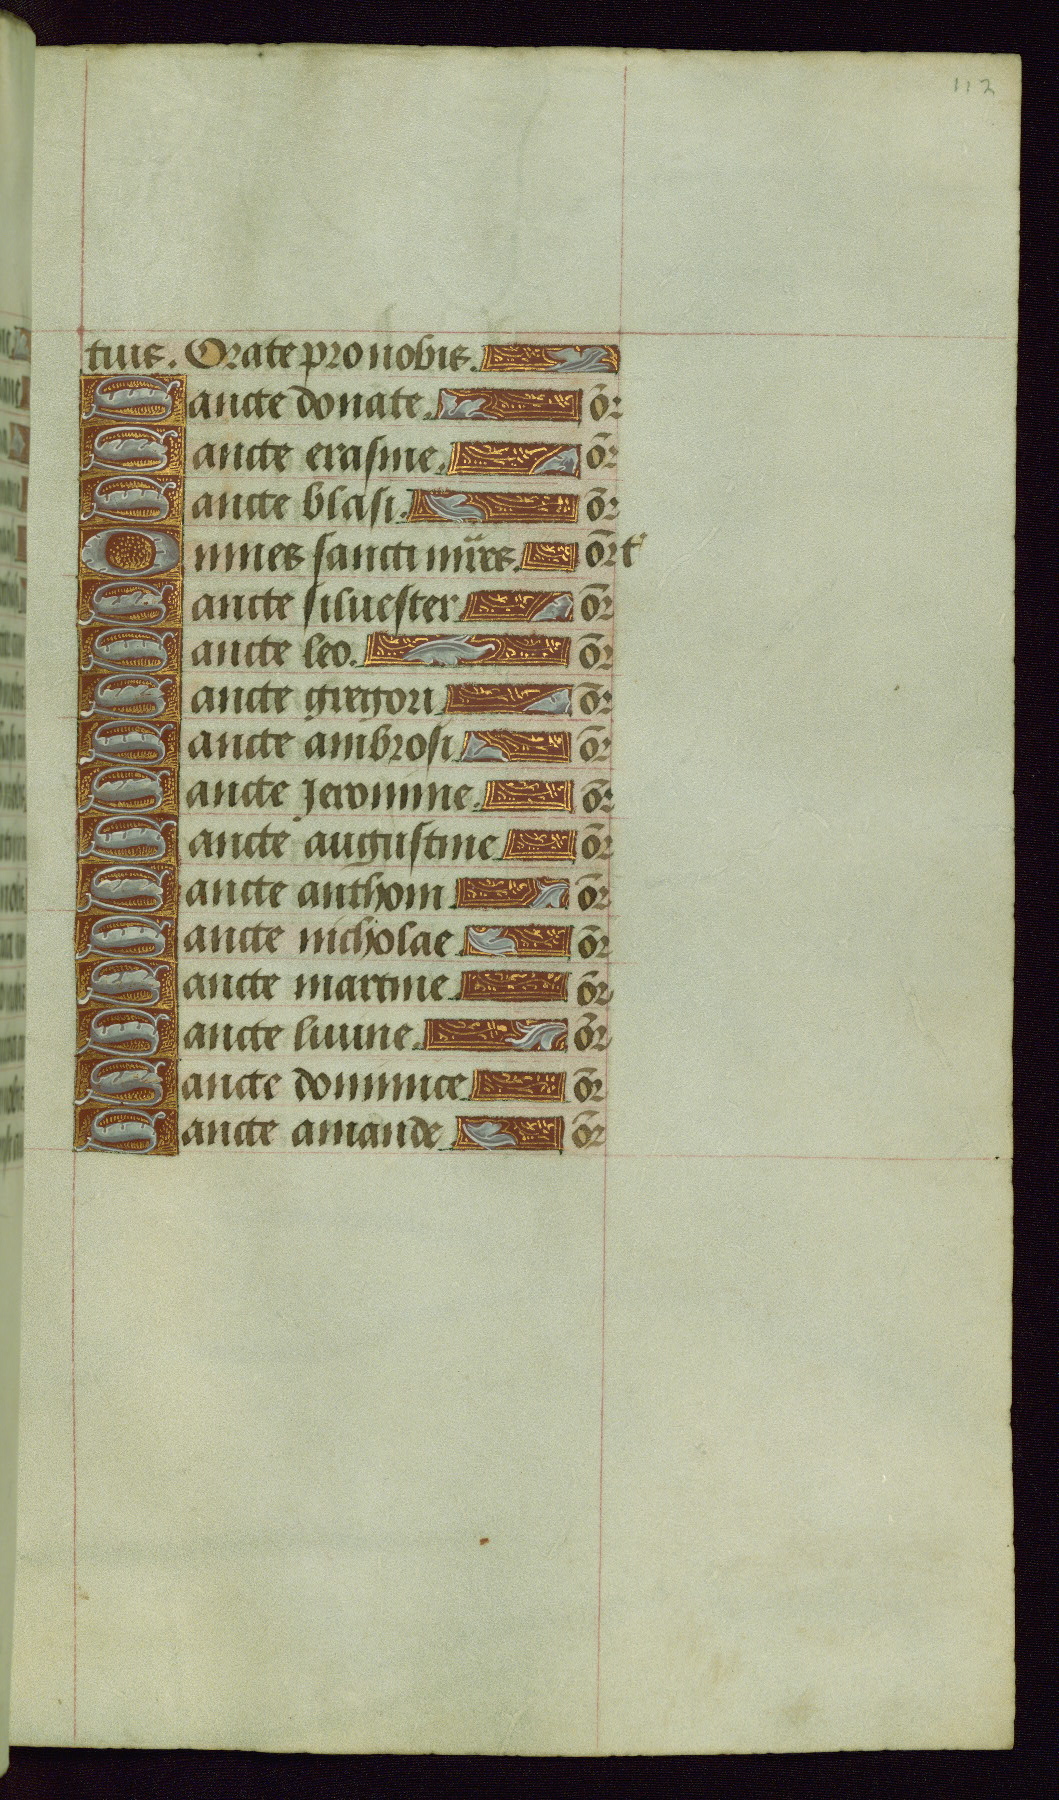 112
tuis. Orate pro nobis.
Sancte donate. or̄
Sancte erasme. or̄
Sancte blasi. or̄
Omnes sancti mr̄es. orat
Sancte siluester or̄
Sancte leo. or̄
Sancte gregori or̄
Sancte ambrosi or̄
Sancte Jeronime. or̄
Sancte augustine or̄
Sancte anthoni or̄
Sancte nicholae or̄
Sancte martine or̄
Sancte liuine. or̄
Sancte dominice or̄
Sancte amande or̄